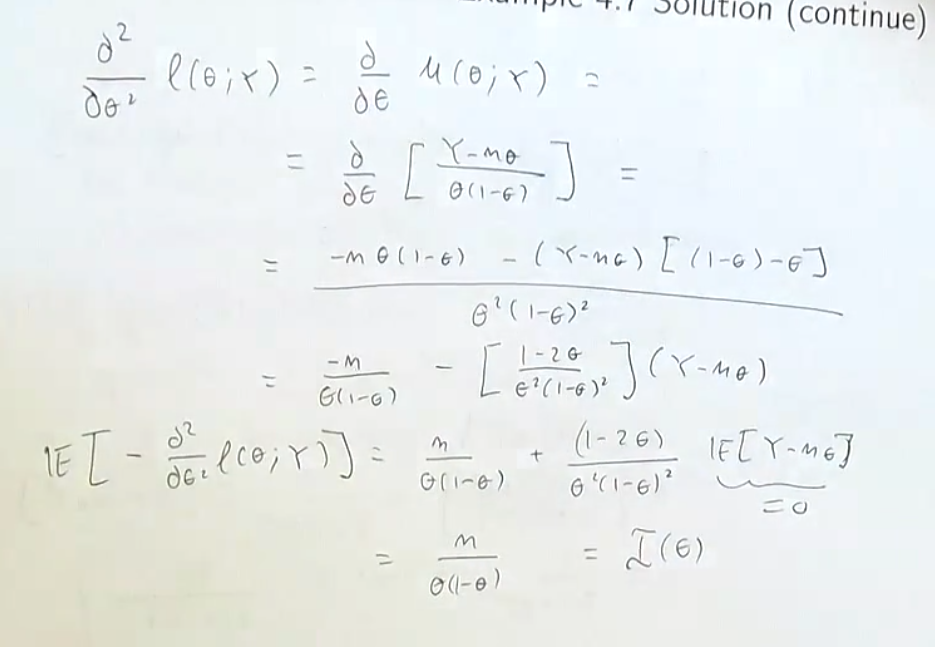 Example 4.7 Solution (continue)
∂²/∂θ² ℓ(θ;Y) = ∂/∂θ u(θ;Y) =
= ∂/∂θ [ (Y-nθ) / (θ(1-θ)) ] =
= ( -nθ(1-θ) - (Y-nθ)[(1-θ)-θ] ) / (θ²(1-θ)²)
= -n / (θ(1-θ)) - [ (1-2θ) / (θ²(1-θ)²) ] (Y-nθ)
𝔼[ - ∂²/∂θ² ℓ(θ;Y) ] = n / (θ(1-θ)) + (1-2θ) / (θ²(1-θ)²) 𝔼[Y-nθ]
=0
= n / (θ(1-θ)) = I(θ)